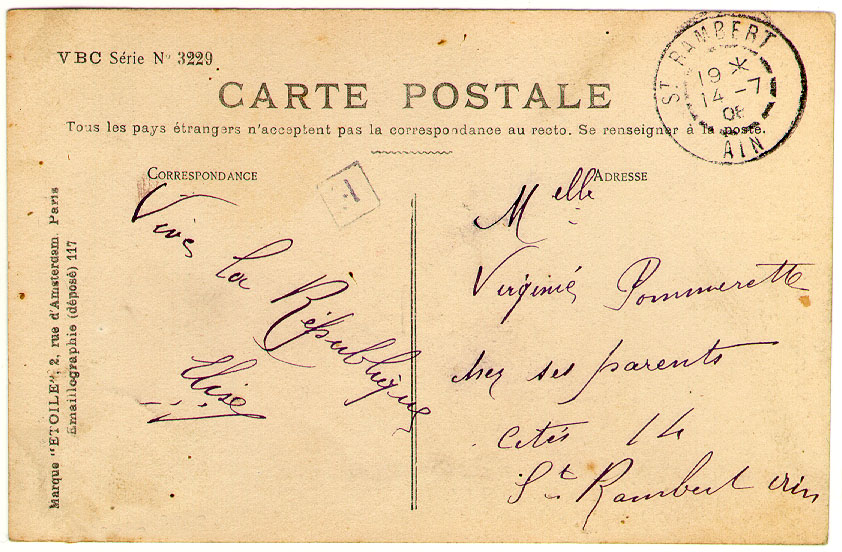 VBC Série No 3229
CARTE POSTALE
Tous les pays étrangers n'acceptent pas la correspondance au recto. Se renseigner à la poste.
CORRESPONDANCE
ADRESSE
ST. RAMBERT
19 *
14 -7
08
AIN
1
Vive la République
Elise
Melle
Virginie Pommerette
chez ses parents
Cités 14
St. Rambert Ain
Marque "ETOILE", 2, rue d'Amsterdam, Paris
Emaillographie (déposé) 117